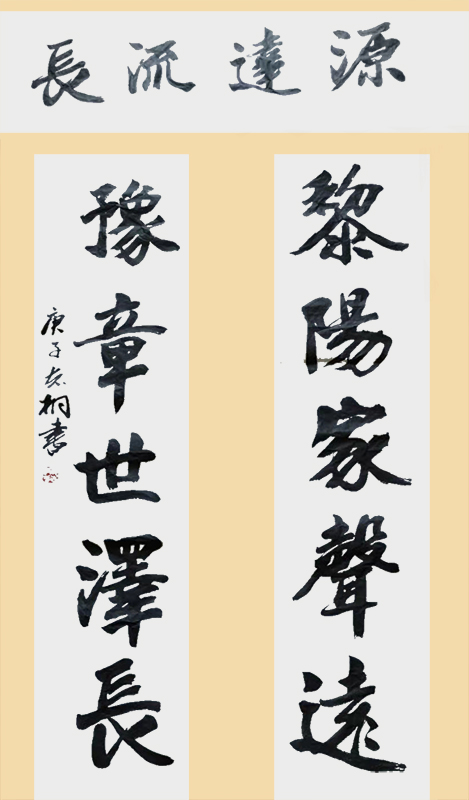 源達流長
黎陽家聲遠
豫章世澤長
庚子桐書